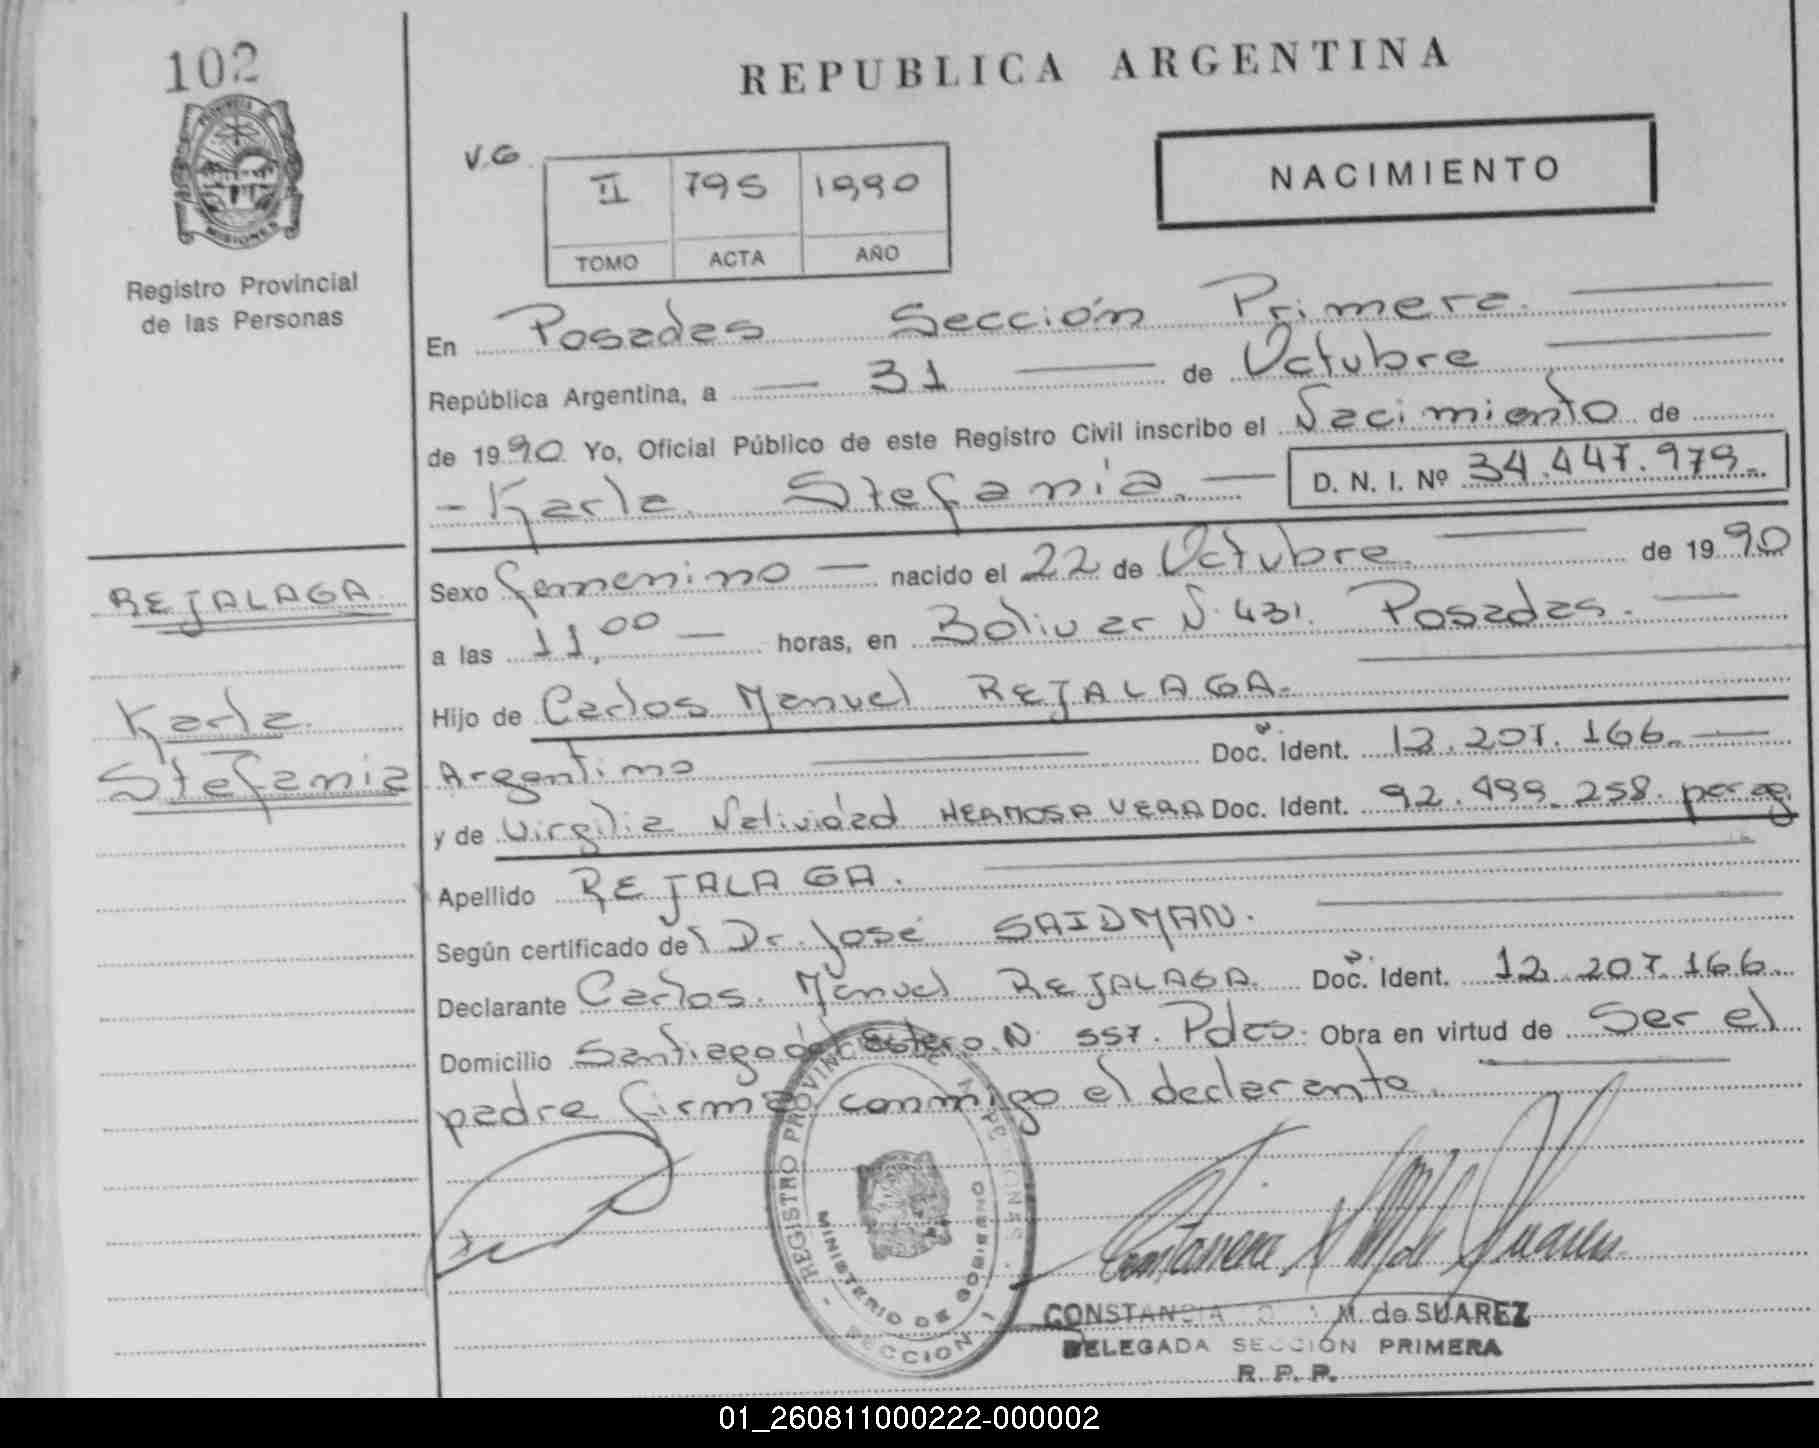 102
PROVINCIA DE
MISIONES
Registro Provincial
de las Personas
REPUBLICA ARGENTINA
NACIMIENTO
V.G
II 795 1990
TOMO ACTA AÑO
En Posadas Sección Primera.
República Argentina, a 31 de Octubre
de 1990 Yo, Oficial Público de este Registro Civil inscribo el Nacimiento de
- Karla Stefania. D. N. I. Nº 34.447.979.
Sexo femenino nacido el 22 de Octubre de 1990
a las 11,00 horas, en Bolivar N. 431. Posadas.
Hijo de Carlos Manuel REJALAGA.
Argentino Doc. Ident. 12.207.166.
y de Virgilia Natividad HERMOSA VERA Doc. Ident. 92.499.258. parag
Apellido REJALAGA.
Según certificado del Dr. José SAIDMAN.
Declarante Carlos Manuel REJALAGA. Doc. Ident. 12.207.166
Domicilio Santiago del Estero. N. 557. Pdas. Obra en virtud de Ser el
padre firma conmigo el declarante.
REJALAGA
Karla
Stefania
REGISTRO PROVINCIAL DE LAS PERSONAS
MINISTERIO DE GOBIERNO
SECCION 1
CONSTANCIA M. de SUAREZ
DELEGADA SECCIÓN PRIMERA
R. P. P.
01_260811000222-000002